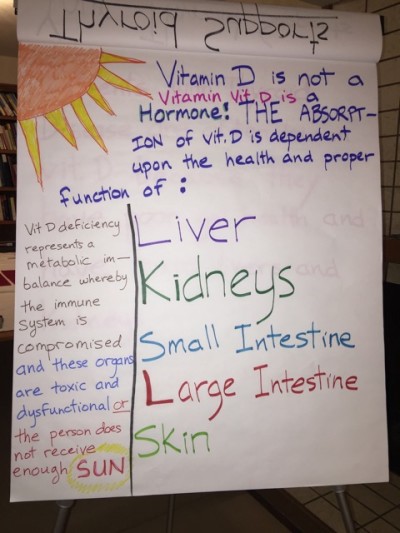 Thyroid Supports
Vitamin D is not a
Vitamin Vit D is a
Hormone! THE ABSORPT-
ION of vit. D is dependent
upon the health and proper
function of :
Vit D deficiency
represents a
metabolic im-
balance whereby
the immune
system is
compromised
and these organs
are toxic and
dysfunctional or
the person does
not receive
enough SUN
Liver
Kidneys
Small Intestine
Large Intestine
Skin